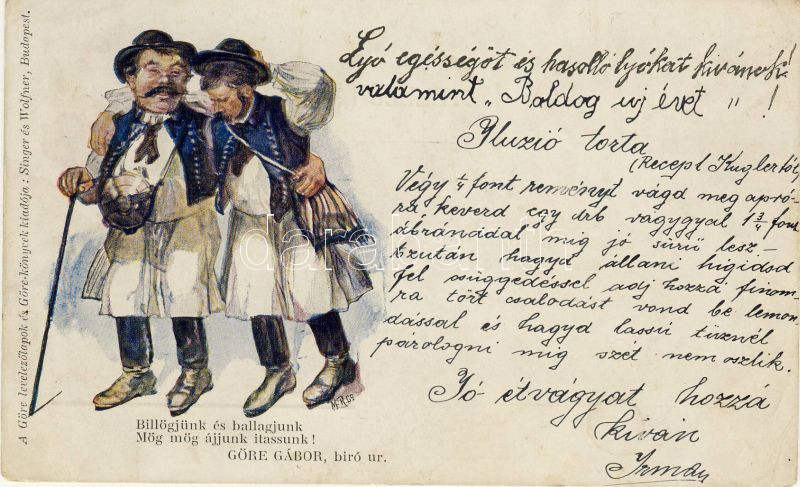 A Göre levelezőlapok és Göre-könyvek kiadója: Singer és Wolfner, Budapest.
Jyó egésségöt és hasolló lyókat kivánok!
valamint „Boldog uj évet" !
Iluzió torta
(Recept Kuglertöl)
Végy ¼ font reményt vágd meg apró-
ra keverd egy drb vágygyal 1 ¾ font
ábránddal mig jó sürü lesz –
azután hagyd állani higidsd
fel csüggedéssel adj hozzá finom-
ra tört csalodást vond be lemon-
dással és hagyd lassú tüznél
párologni mig szét nem oszlik.
Jó étvágyat hozzá
kiván
Irman
darabanth
Billögjünk és ballagjunk
Mög mög ájjunk itassunk!
GÖRE GÁBOR, biró ur.